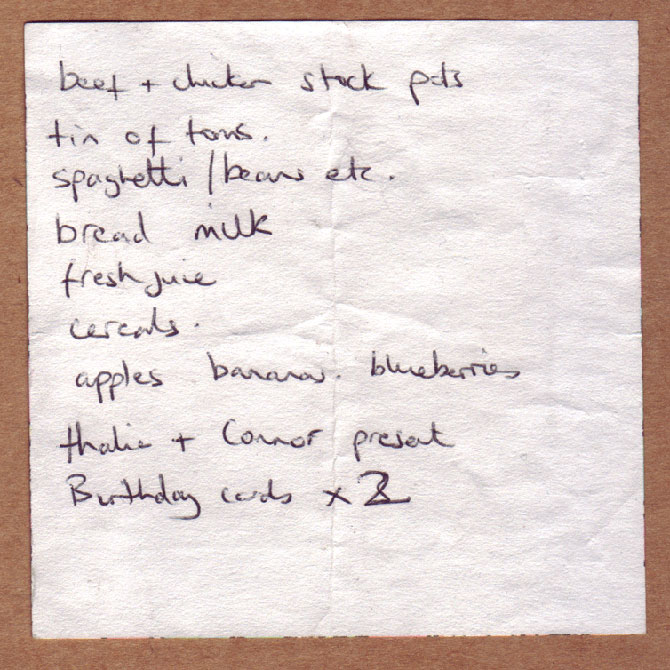 beef + chicken stock pots
tin of toms.
spaghetti / beans etc.
bread milk
fresh juice
cereals.
apples bananas. blueberries
thalia + Connor present
Birthday cards x 2